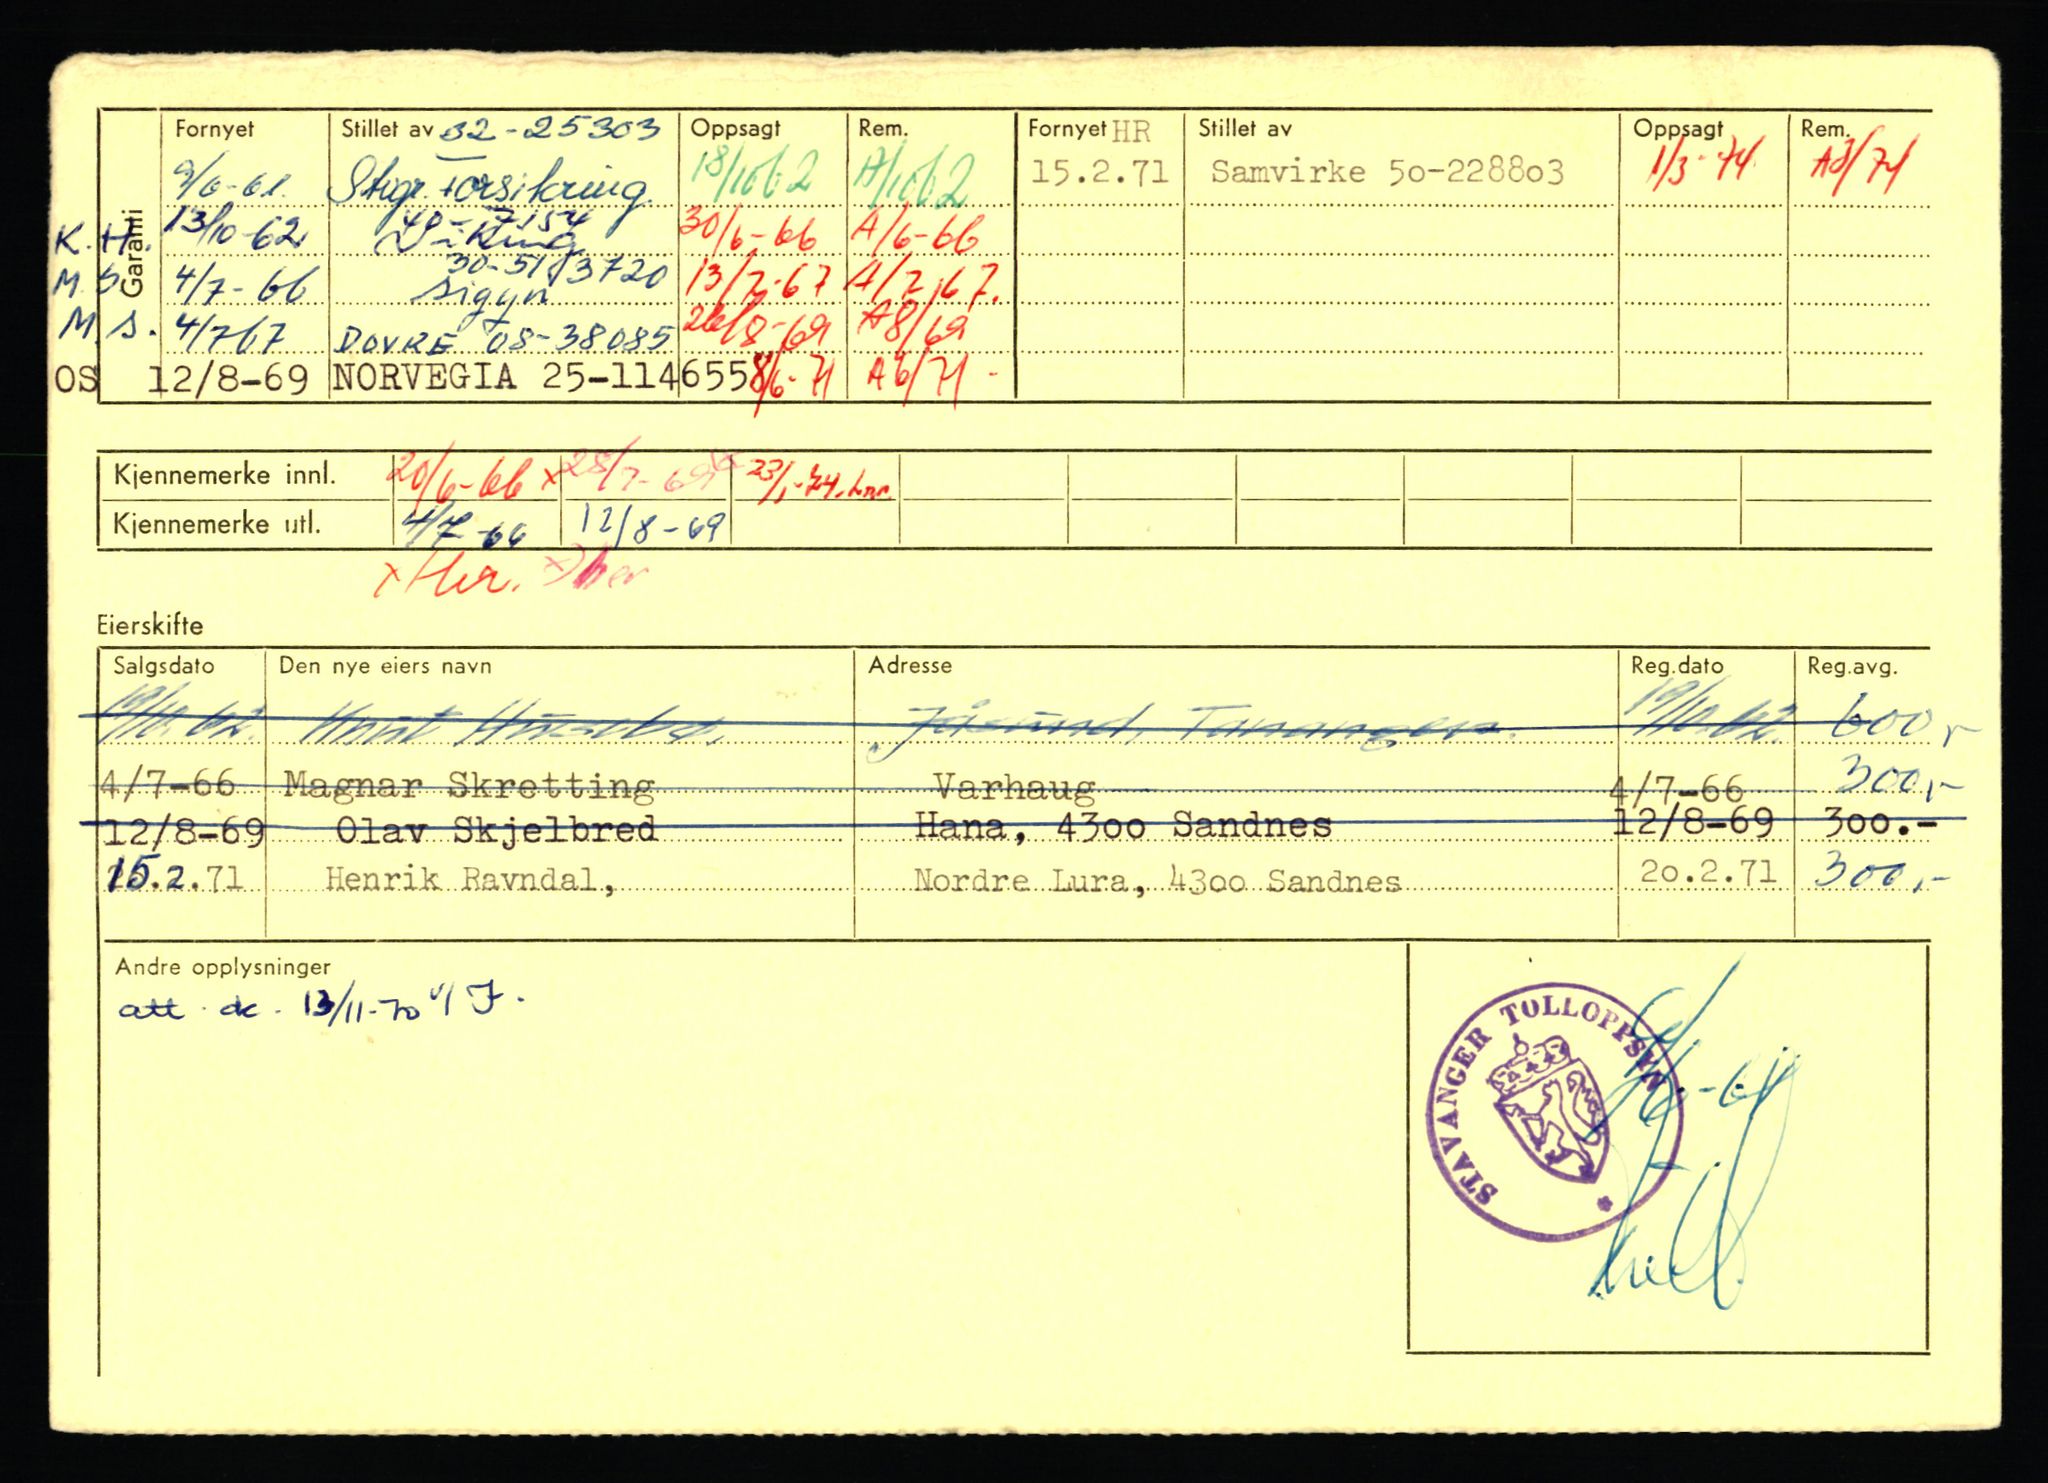 Garanti
Fornyet Stillet av 32-25303 Oppsagt Rem. Fornyet HR Stillet av Oppsagt Rem.
9/6-61. Stvgr. Forsikring 18/10 62 A/10 62 15.2.71 Samvirke 5o-2288o3 1/3-74 A3/74
K.H. 13/10-62 40-17154 Viking 30/6-66 A/6-66
M.S. 4/7-66 30-51 13720 Sigyn 13/7-67 A/7 67.
M.S. 4/7 67 DOVRE 08-38085 26/8-69 A8/69
OS 12/8-69 NORVEGIA 25-114655 8/6-71 A6/71 -
Kjennemerke innl. 20/6-66 x 28/7-69 23/1-74. Lnr.
Kjennemerke utl. 4/7-66 12/8-69
Eierskifte
Salgsdato Den nye eiers navn Adresse Reg.dato Reg.avg.
19/10.62. Knut Jåsund, Tananger. 19/10.62. 600,-
4/7-66 Magnar Skretting Varhaug 4/7-66 300,-
12/8-69 Olav Skjelbred Hana, 43oo Sandnes 12/8-69 300.-
15.2.71 Henrik Ravndal, Nordre Lura, 43oo Sandnes 2o.2.71 300,-
Andre opplysninger
att. dk. 13/11-70 J.
STAVANGER TOLLOPPSYN